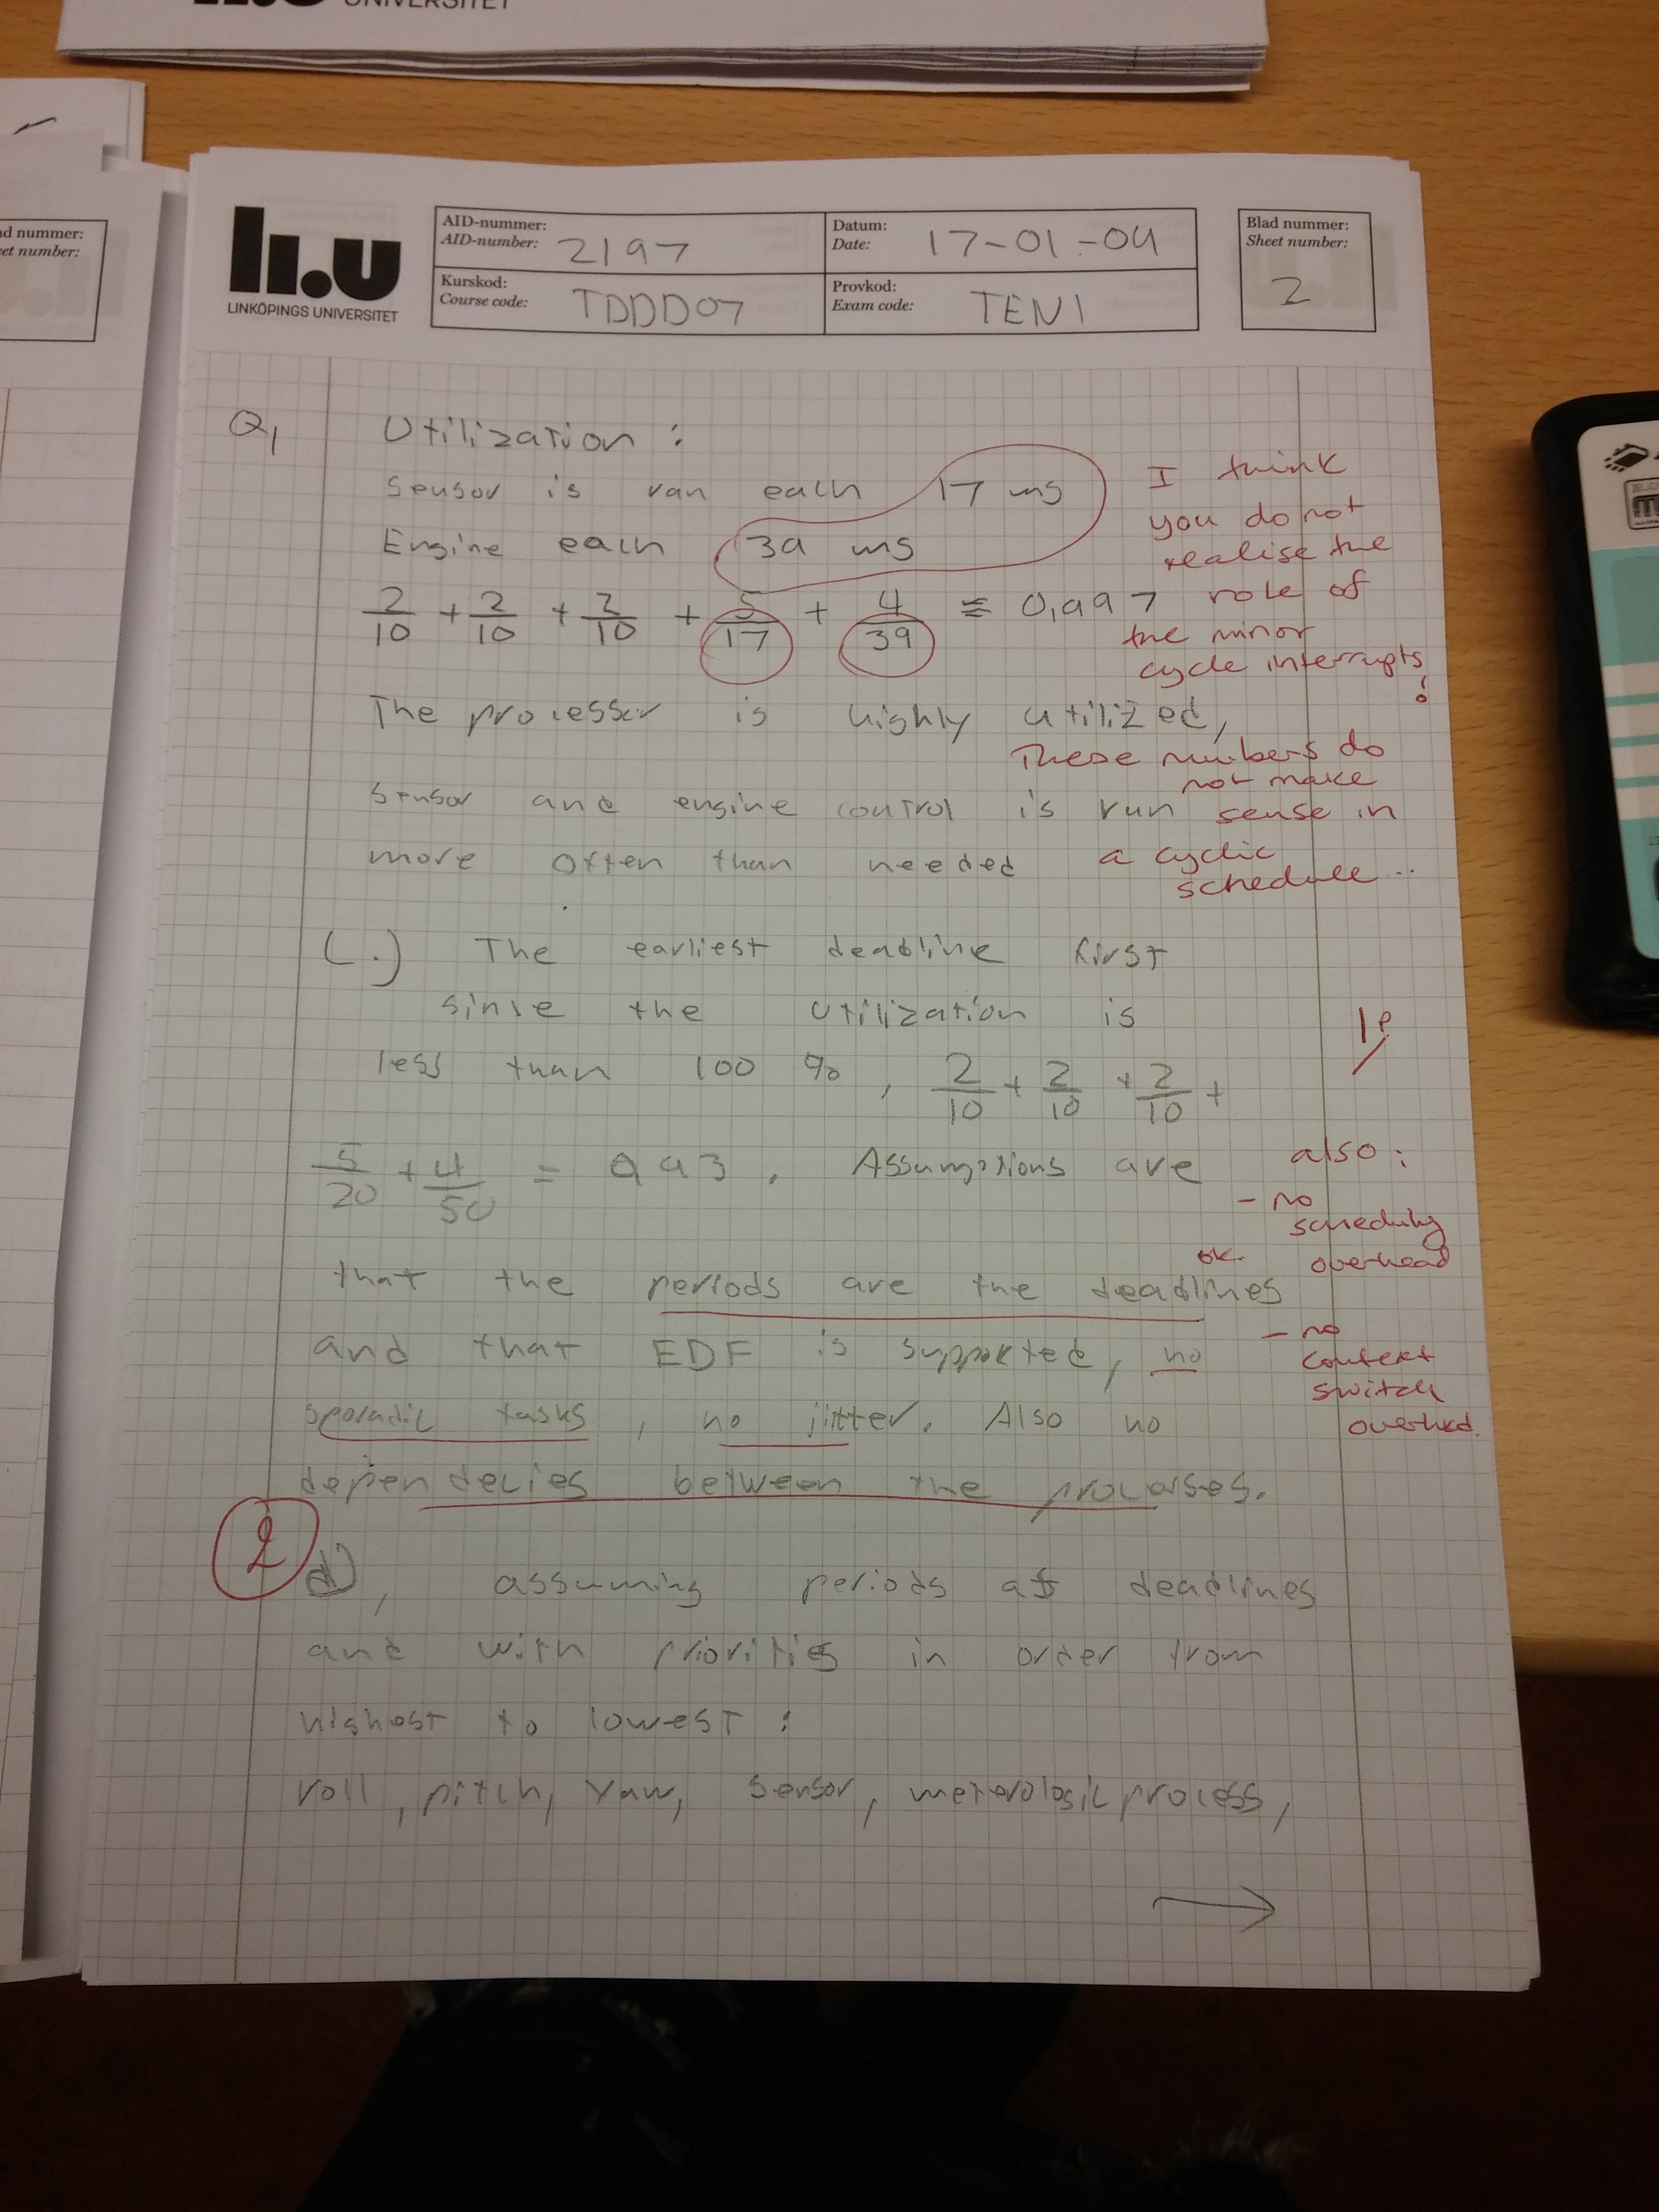 UNIVERSITET
ad nummer:
eet number:
li.u
LINKÖPINGS UNIVERSITET
AID-nummer:
AID-number: 2197
Datum:
Date: 17-01-04
Blad nummer:
Sheet number:
2
Kurskod:
Course code: TDDD07
Provkod:
Exam code: TEN1
Q1 Utilization:
Sensor is ran each 17 ms
Engine each 39 ms
2/10 + 2/10 + 2/10 + 5/17 + 4/39 = 0,997
I think
you do not
realise the
role of
the minor
cycle interrupts
!
The processor is highly utilized,
sensor and engine control is run
more often than needed
These numbers do
not make
sense in
a cyclic
schedule...
C.) The earliest deadline first
sinse the utilization is
less than 100 %, 2/10 + 2/10 + 2/10 +
5/20 + 4/50 = 0,93. Assumptions are
that the periods are the deadlines
and that EDF is supported, no
sporadic tasks, no jitter. Also no
dependecies between the processes.
1p
also:
- no
scheduling
overhead
ok
- no
context
switch
overhead.
2
d), assuming periods as deadlines
and with priorities in order from
highest to lowest:
roll, pitch, Yaw, Sensor, meterologic process,